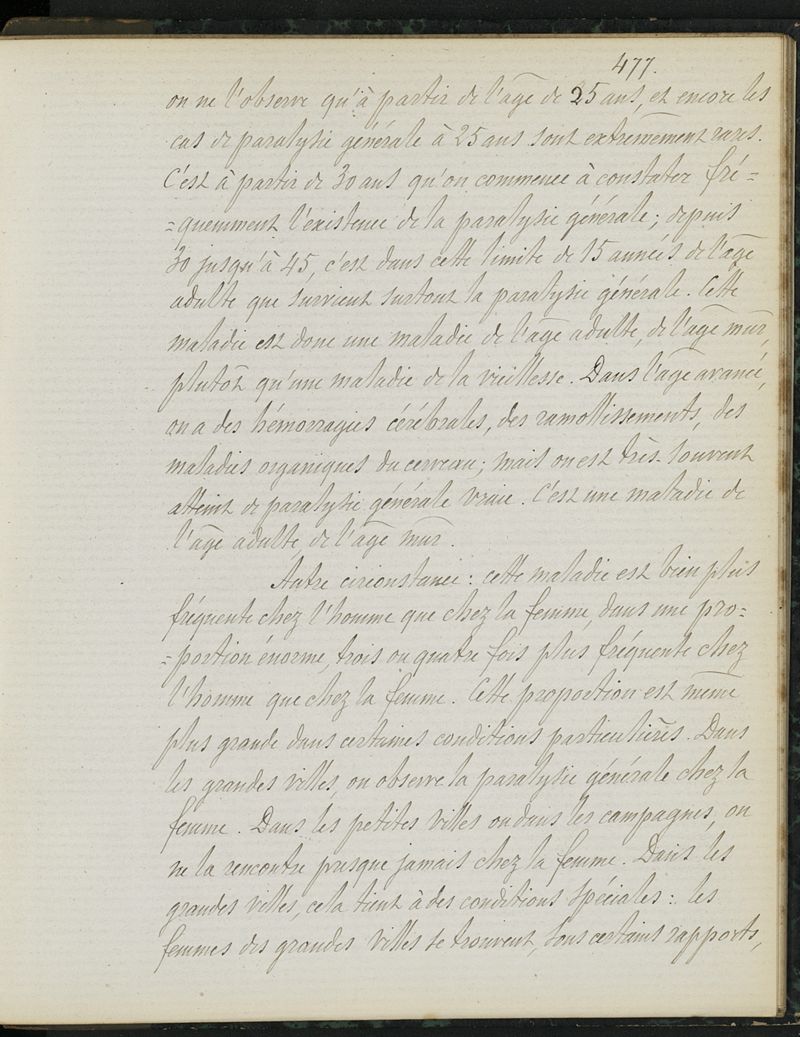 477.
on ne l'observe qu'à partir de l'âge de 25 ans, et encore les
cas de paralysie générale à 25 ans sont extrêmement rares.
C'est à partir de 30 ans qu'on commence à constater fré-
=quemment l'existence de la paralysie générale; depuis
30 jusqu'à 45, c'est dans cette limite de 15 années de l'âge
adulte que survient surtout la paralysie générale. Cette
maladie est donc une maladie de l'âge adulte, de l'âge mûr,
plutôt qu'une maladie de la vieillesse. Dans l'âge avancé,
on a des hémorragies cérébrales, des ramollissements, des
maladies organiques du cerveau; mais on est très souvent
atteint de paralysie générale vraie. C'est une maladie de
l'âge adulte de l'âge mûr.
Autre circonstance: cette maladie est bien plus
fréquente chez l'homme que chez la femme, dans une pro=
=portion énorme, trois ou quatre fois plus fréquente chez
l'homme que chez la femme. Cette proportion est même
plus grande dans certaines conditions particulières. Dans
les grandes villes, on observe la paralysie générale chez la
femme. Dans les petites villes ou dans les campagnes, on
ne la rencontre presque jamais chez la femme. Dans les
grandes villes, cela tient à des conditions spéciales: les
femmes des grandes villes se trouvent, sous certains rapports,